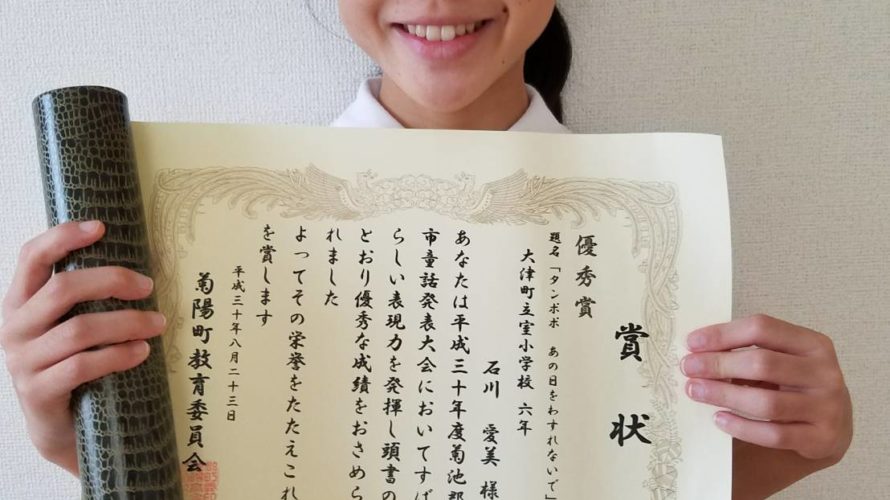 賞状
優秀賞
題名「タンポポ あの日をわすれないで」
大津町立室小学校 六年
石川 愛美 様
あなたは平成三十年度菊池郡
市童話発表大会においてすば
らしい表現力を発揮し頭書の
とおり優秀な成績をおさめら
れました
よってその栄誉をたたえこれ
を賞します
平成三十年八月二十三日
菊陽町教育委員会